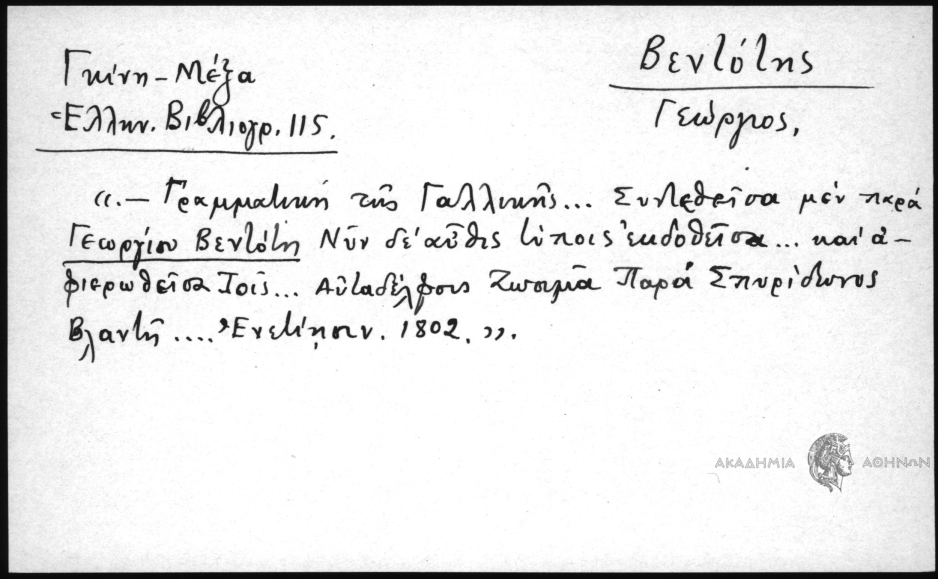 Γκίνη - Μέξα
Ἑλλην. Βιβλιογρ. 115.
Βεντότης
Γεώργιος,
«.— Γραμματική τῆς Γαλλικῆς... Συντεθεῖσα μέν παρά
Γεωργίου Βεντότη Νῦν δέ αὖθις τύποις ἐκδοθεῖσα... καί ἀ-
φιερωθεῖσα Τοῖς... Αὐταδέλφοις Ζωσιμᾶ Παρά Σπυρίδωνος
Βλαντῆ .... Ἐνετίῃσιν. 1802. ».
ΑΚΑΔΗΜΙΑ ΑΘΗΝΩΝ